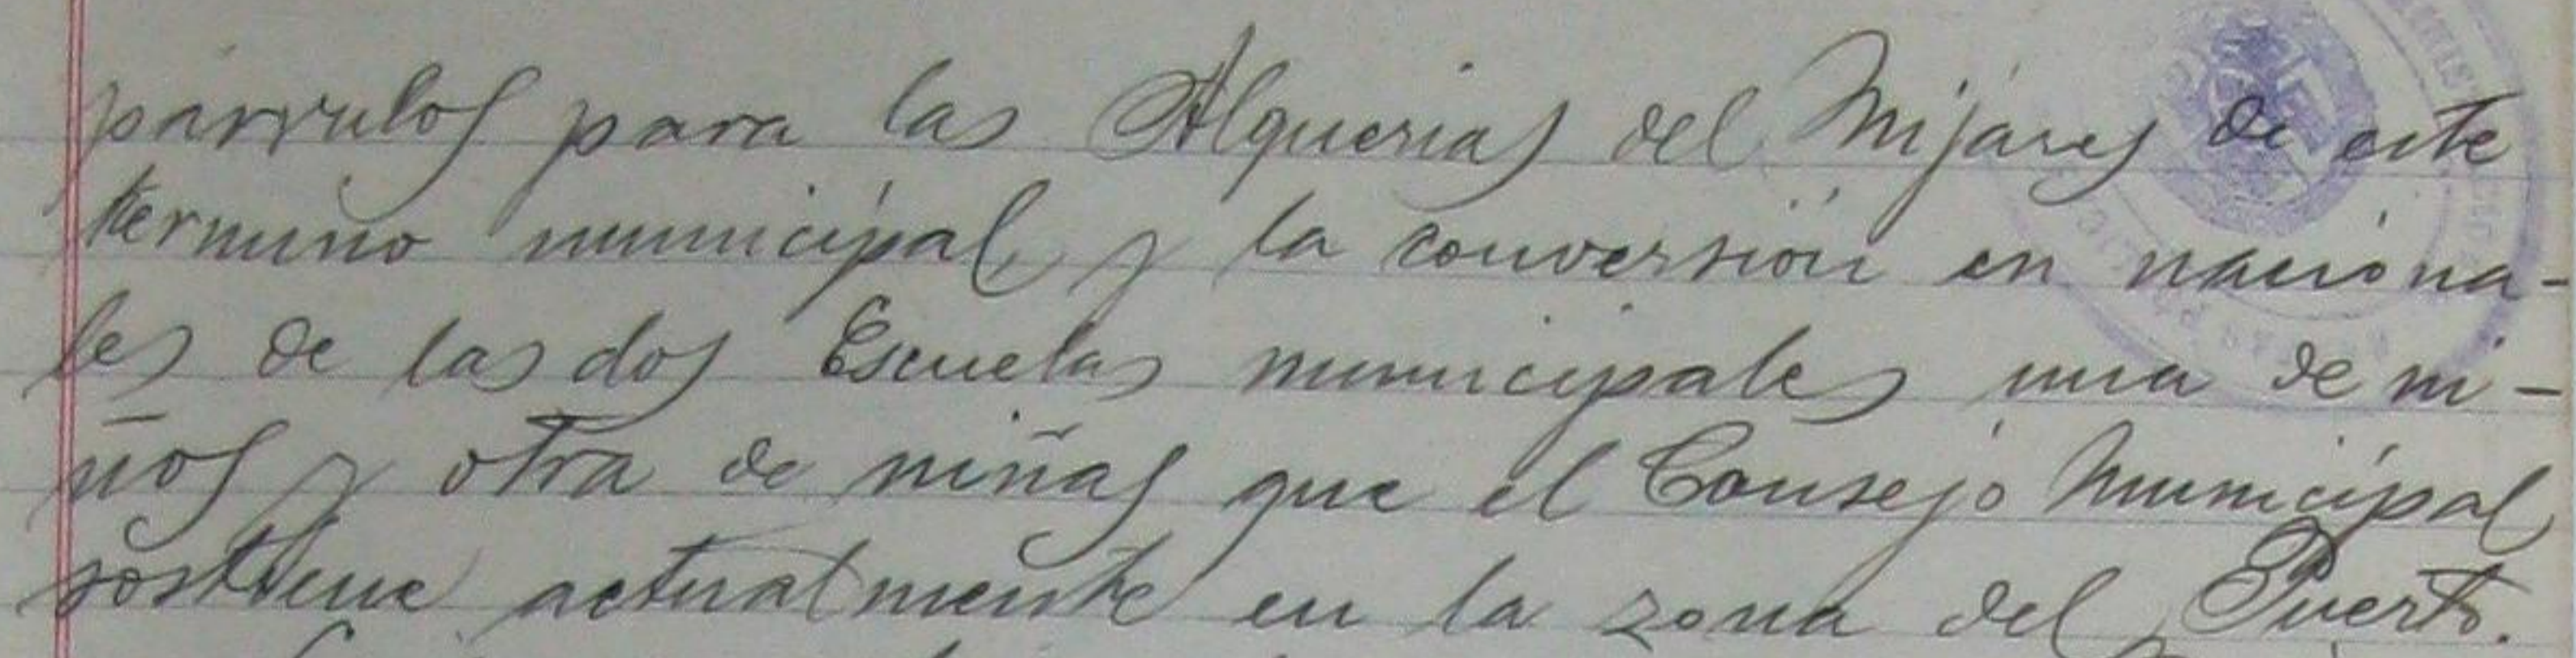 párvulos para las Alquerias del Mijares de este
termino municipal y la conversión en naciona-
les de las dos Escuelas municipales una de ni-
ños y otra de niñas que el Consejo Municipal
sostiene actualmente en la zona del Puerto.